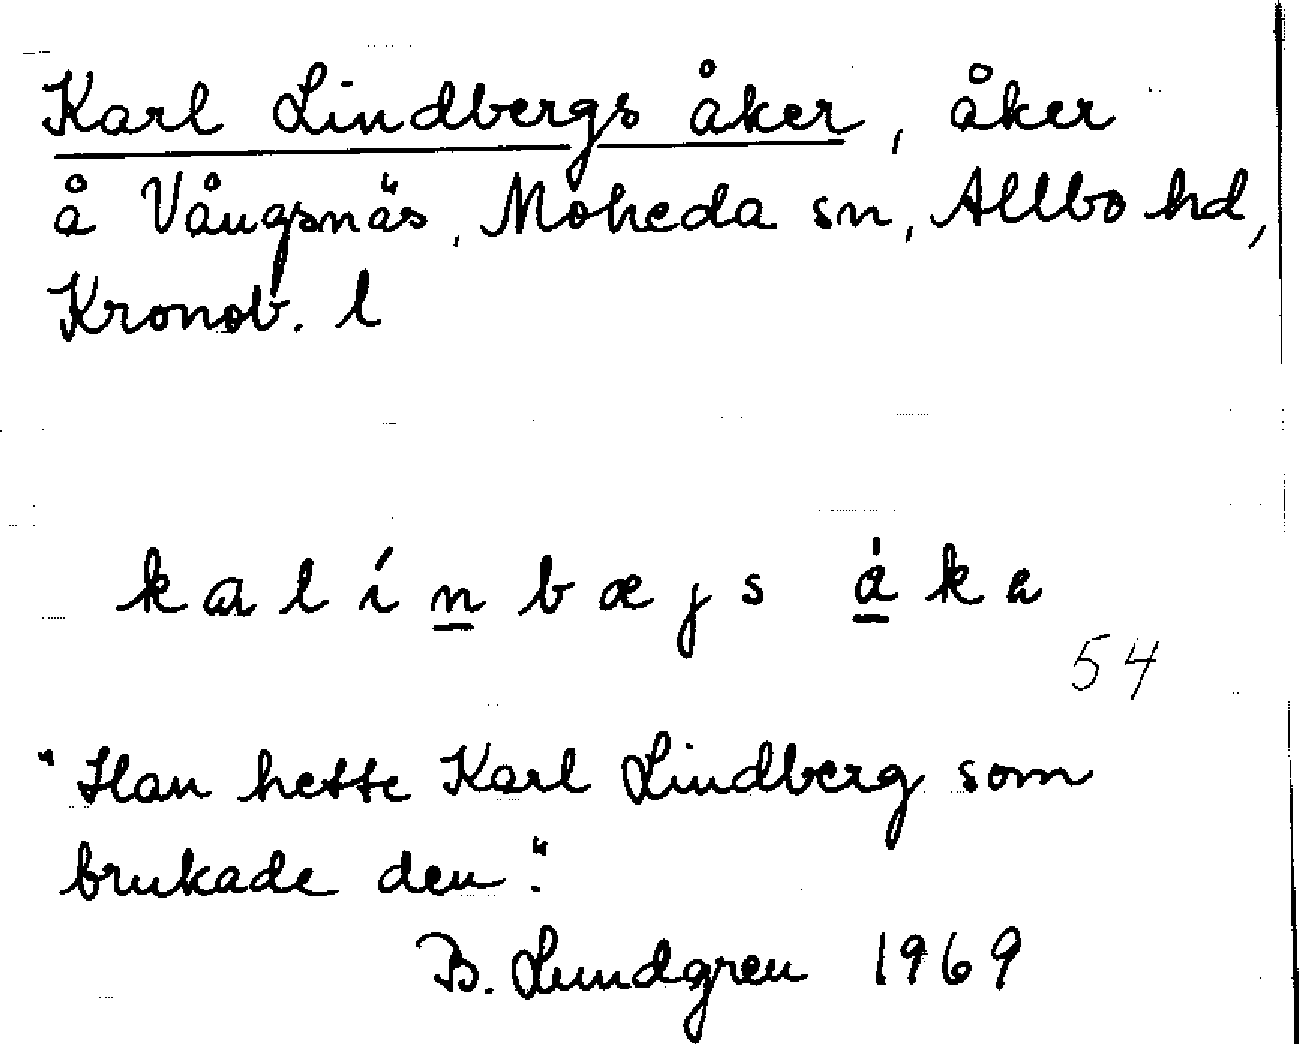 Karl Lindbergs åker, åker
å Vångsnäs, Moheda sn, Allbo hd,
Kronob. l
k a l í n b æ j s å k a
54
"Han hette Karl Lindberg som
brukade den."
B. Lundgren 1969